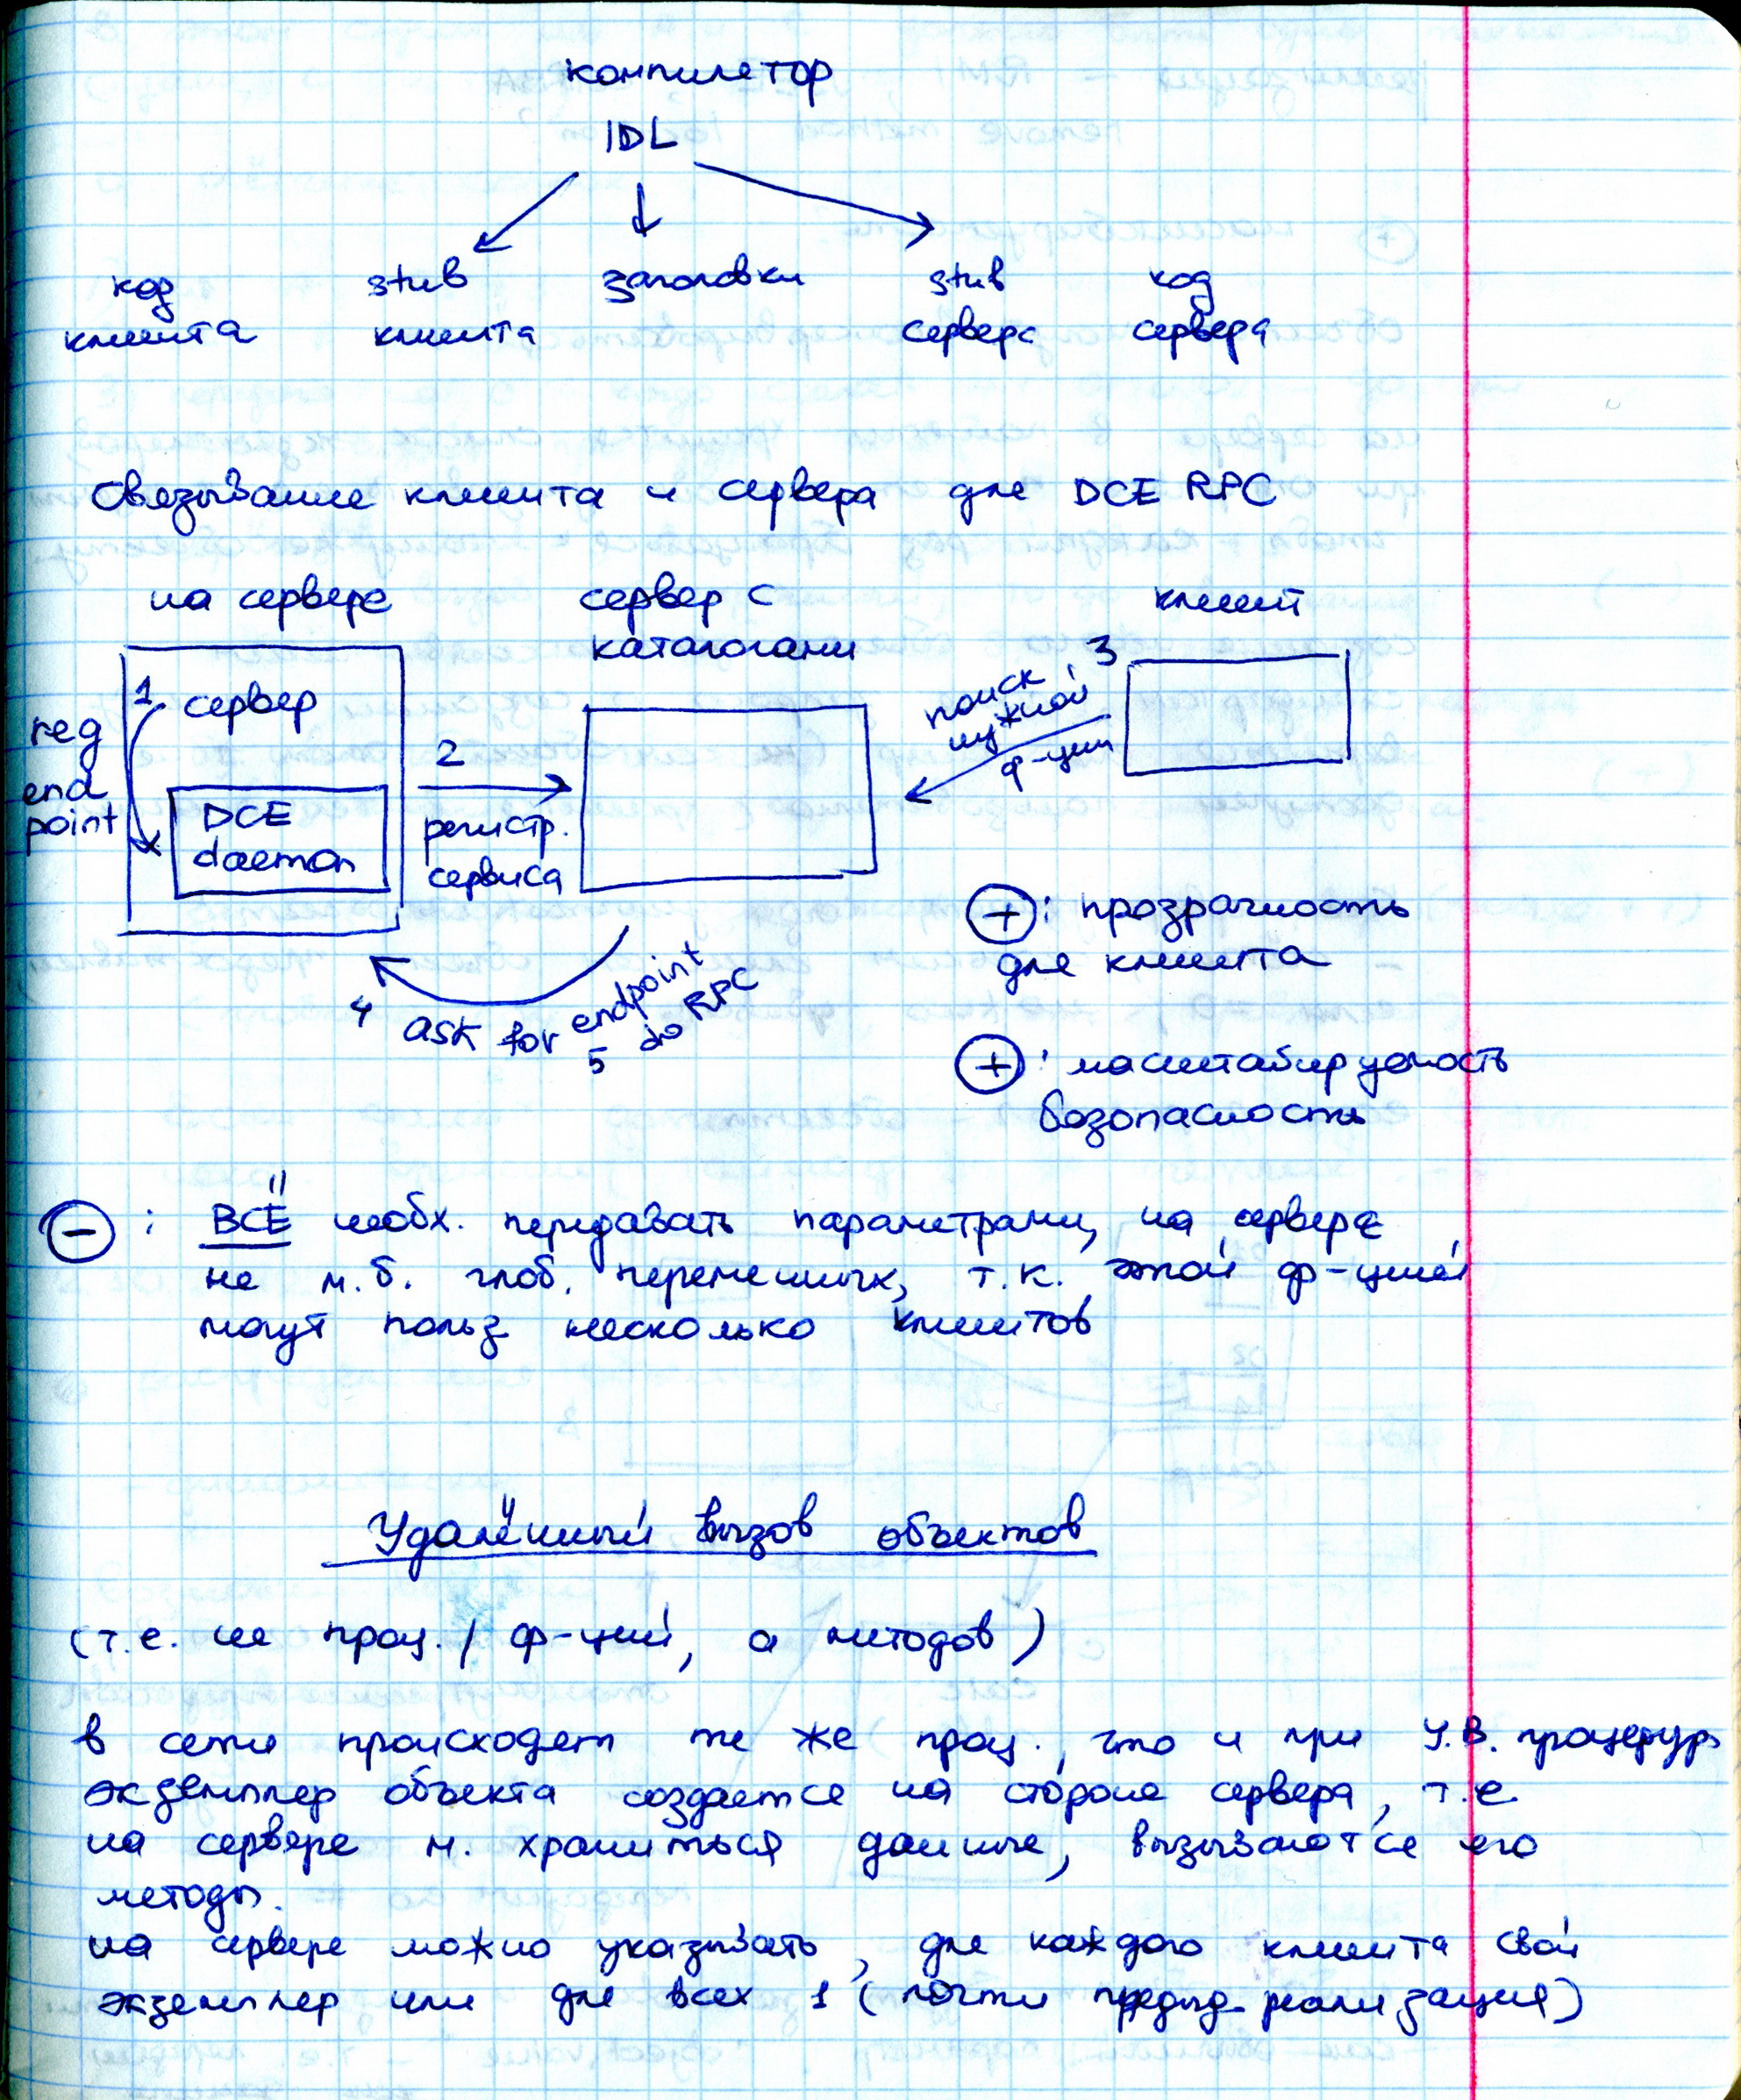 компилятор
IDL
код stub заголовки stub код
клиента клиента сервера сервера
Связывание клиента и сервера для DCE RPC
на сервере сервер с клиент
каталогами
1 сервер
reg
end
point
DCE
daemon
2
регистр.
сервиса
3
поиск
нужной
ф-ции
4 ask for endpoint
5 do RPC
+ : прозрачность
для клиента
+ : масштабируемость
безопасность
− : ВСЁ необх. передавать параметрами, на сервере
не м.б. глоб. переменных, т.к. этой ф-цией
могут польз несколько клиентов
Удалённый вызов объектов
(т.е. не проц./ф-ций, а методов)
в сети происходят те же проц., что и при У.В. процедур
экземпляр объекта создается на стороне сервера, т.е
на сервере м. храниться данные, вызываются его
методы.
на сервере можно указывать, для каждого клиента свой
экземпляр или для всех 1 (почти предыд. реализация)